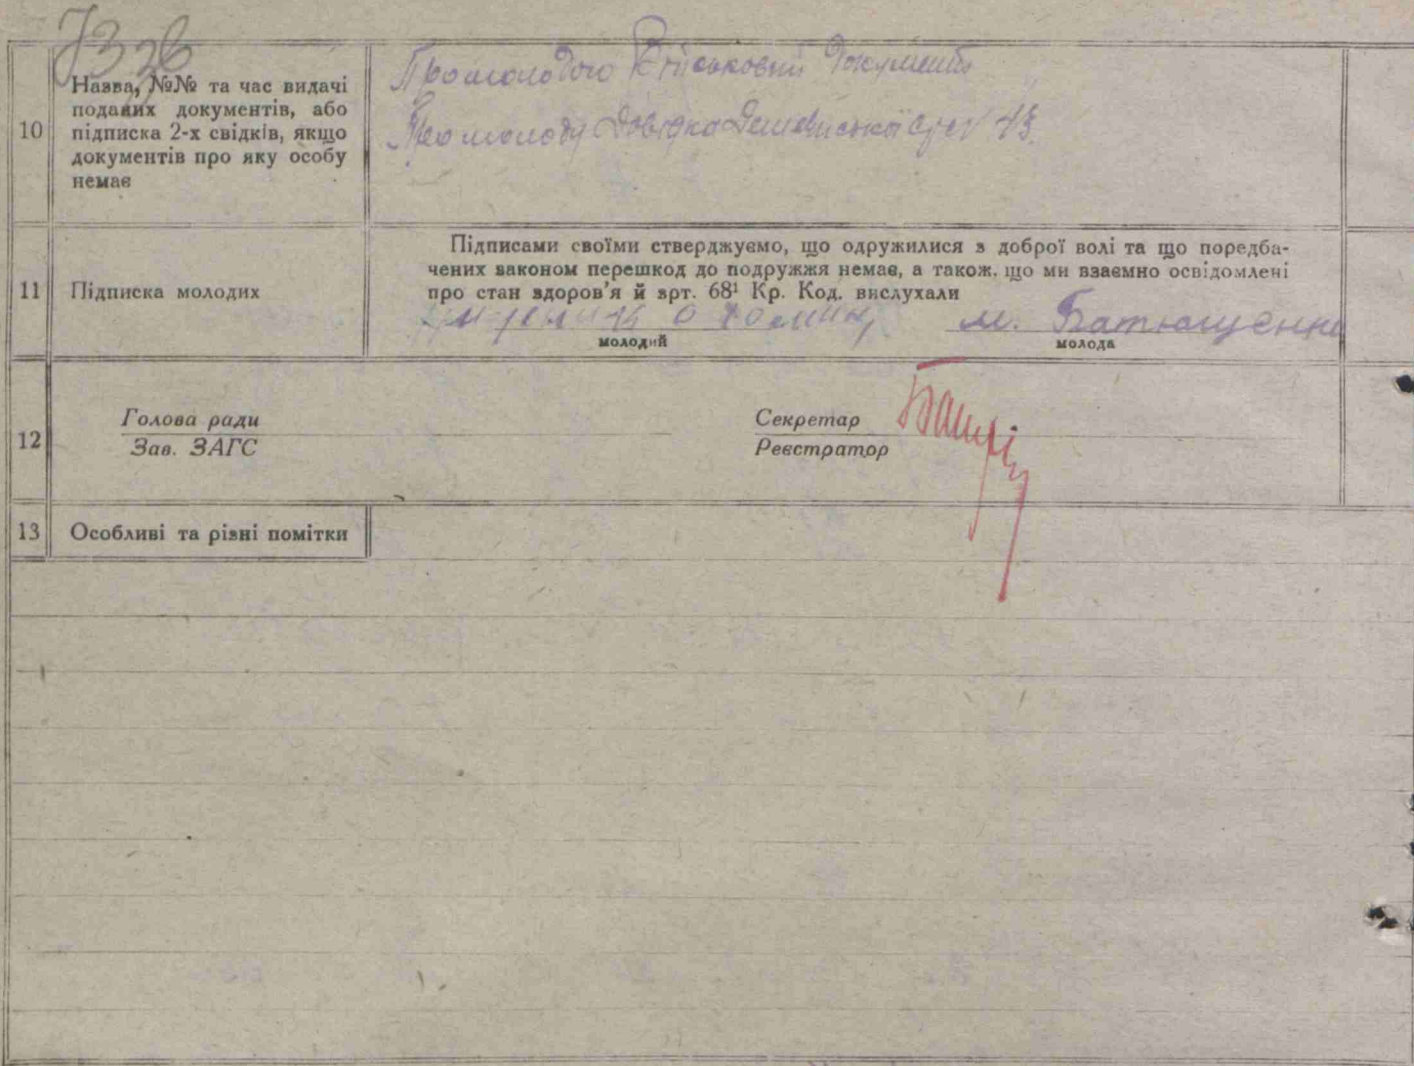 10
Назва, №№ та час видачі
поданих документів, або
підписка 2-х свідків, якщо
документів про яку особу
немає
Про молодого Військовий документ
Про молоду Довідка 43
11
Підписка молодих
Підписами своїми стверджуємо, що одружилися з доброї волі та що поредба-
чених законом перешкод до подружжя немає, а також, що ми взаємно освідомлені
про стан здоров'я й арт. 68¹ Кр. Код. вислухали
м. Батющенко
молодий молода
12
Голова ради Секретар
Зав. ЗАГС Реєстратор
13
Особливі та різні помітки